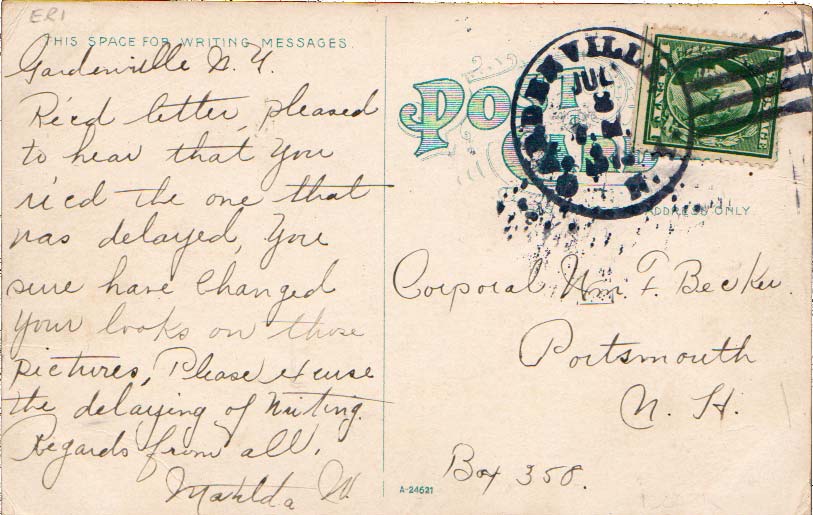 ERI
THIS SPACE FOR WRITING MESSAGES
Gardenville N. Y.
Rec'd letter, pleased
to hear that you
ric'd the one that
was delayed, You
sure have changed
your looks on those
pictures, Please excuse
the delaying of writing.
Regards from all,
Matilda M
POST
CARD
ADDRESS ONLY
GARDENVILLE
JUL
8
N. Y.
Corporal Wm. F. Becker.
Portsmouth
N. H.
Box 358.
A-24621